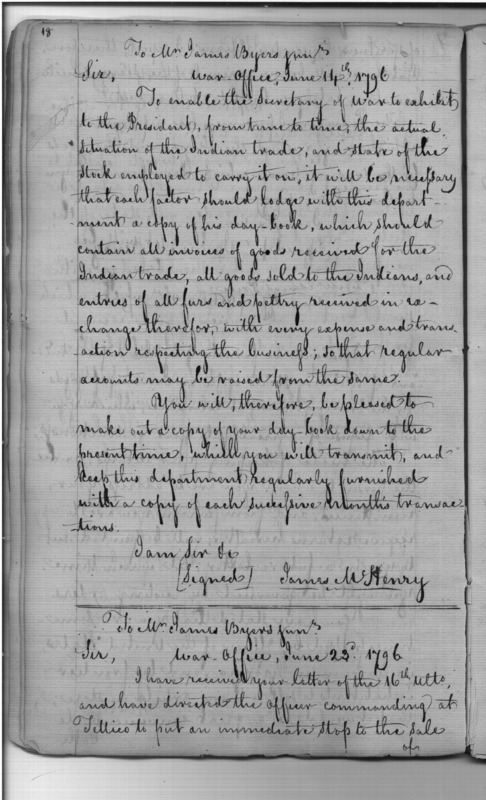 18
To Mr James Byers junr
Sir, War Office, June 14th 1796
To enable the Secretary of War to exhibit
to the President, from time to time, the actual
situation of the Indian trade, and state of the
stock employed to carry it on, it will be necessary
that each factor should lodge with this depart-
ment a copy of his day-book, which should
contain all invoices of goods received for the
Indian trade, all goods sold to the Indians, and
entries of all furs and peltry received in ex-
change therefor, with every expense and trans-
action respecting the business; so that regular
accounts may be raised from the same.
You will, therefore, be pleased to
make out a copy of your day-book down to the
present time, which you will transmit, and
keep this department regularly furnished
with a copy of each successive month's transac
-tions.
I am Sir &c
[Signed] James McHenry
To Mr James Byers junr
Sir, War Office, June 23d 1796
I have received your letter of the 16th ulto,
and have directed the officer commanding at
Tellico to put an immediate stop to the sale
of